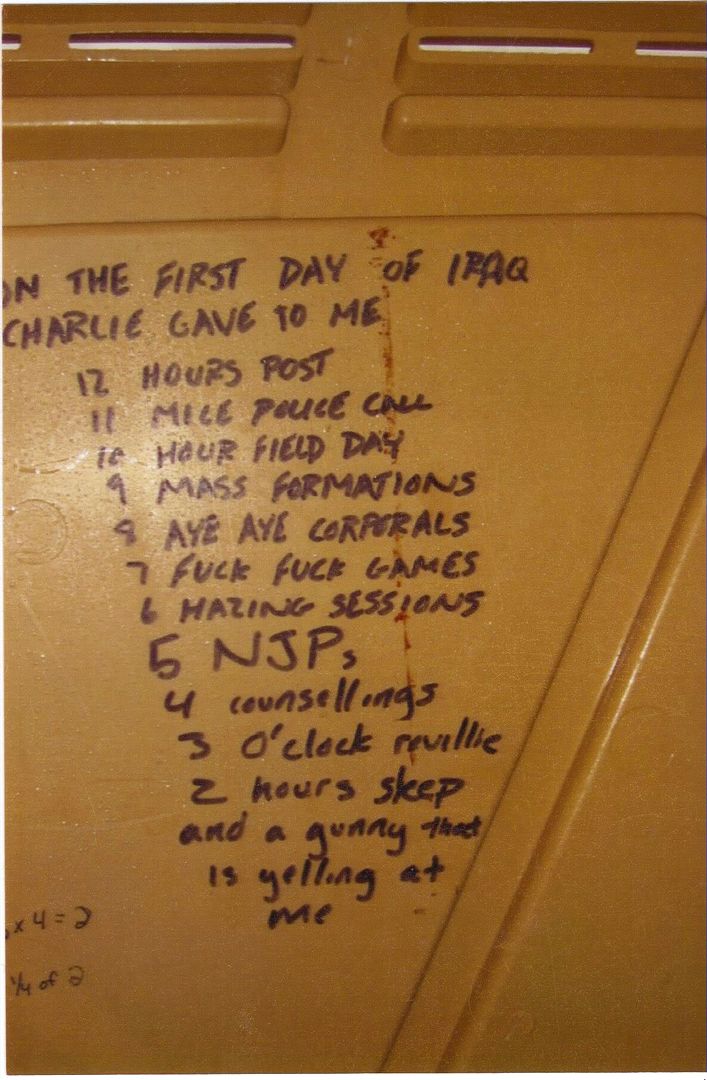 ON THE FIRST DAY OF IRAQ
CHARLIE GAVE TO ME
12 HOURS POST
11 MILE POLICE CALL
10 HOUR FIELD DAY
9 MASS FORMATIONS
8 AYE AYE CORPORALS
7 FUCK FUCK GAMES
6 HAZING SESSIONS
5 NJPs
4 counsellings
3 O'clock revillie
2 hours sleep
and a gunny that
is yelling at
me
x 4 = 2
1/4 of 2